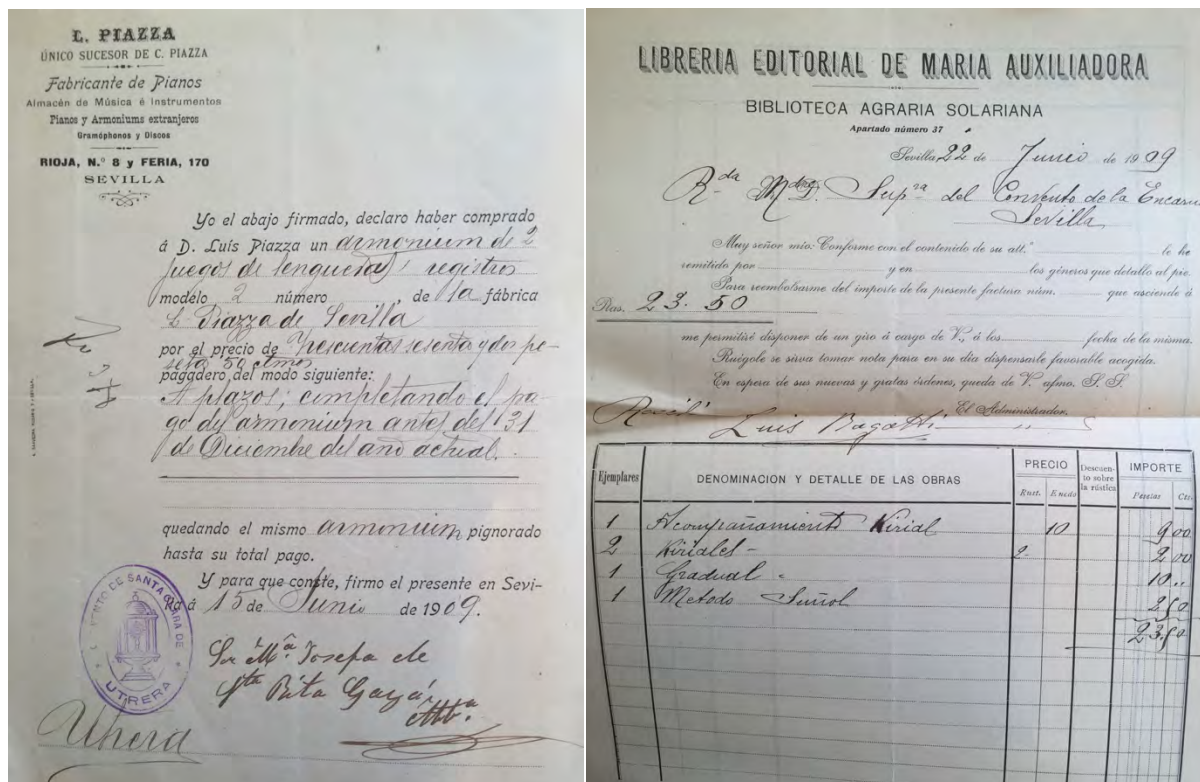 L. PIAZZA
ÚNICO SUCESOR DE C. PIAZZA
Fabricante de Pianos
Almacén de Música é Instrumentos
Pianos y Armoniums extranjeros
Gramóphonos y Discos
RIOJA, N.º 8 y FERIA, 170
SEVILLA
Yo el abajo firmado, declaro haber comprado
á D. Luís Piazza un armonium de 2
juegos de lenguetas, registros
modelo 2 número , de la fábrica
L Piazza de Sevilla
por el precio de Trescientas sesenta y dos pe-
setas 54 ctmos
pagadero del modo siguiente:
A plazos; completando el pa-
go del armonium antes del 31
de Diciembre del año actual.
quedando el mismo armonium pignorado
hasta su total pago.
Y para que conste, firmo el presente en Sevi-
lla á 15 de Junio de 1909.
CONVENTO DE SANTA CLARA DE
UTRERA
Sor Mª. Josefa de
Sta Rita Gayá
Abª.
Utrera
LIBRERIA EDITORIAL DE MARIA AUXILIADORA
BIBLIOTECA AGRARIA SOLARIANA
Apartado número 37
Sevilla, 22 de Junio de 1909
Rda Mdre D. Supra del Convento de la Encarn
Sevilla
Muy señor mío: Conforme con el contenido de su att.ª le he
remitido por y en los géneros que detallo al pie.
Para reembolsarme del importe de la presente factura núm. que asciende á
Ptas. 23.50
me permitiré disponer de un giro á cargo de V., á los fecha de la misma.
Ruégole se sirva tomar nota para en su día dispensarle favorable acogida.
En espera de sus nuevas y gratas órdenes, queda de V. afmo. S. S.
El Administrador,
Recibí Luis Bagatti
Ejemplares DENOMINACION Y DETALLE DE LAS OBRAS PRECIO Descuento sobre la rústica IMPORTE
Rust. Encdo Pesetas Cts.
1 Acompañamiento Kirial 10 9 00
2 Kiriales - 2- 2 00
1 Gradual " 10 "
1 Metodo Suñol 2 50
23 50